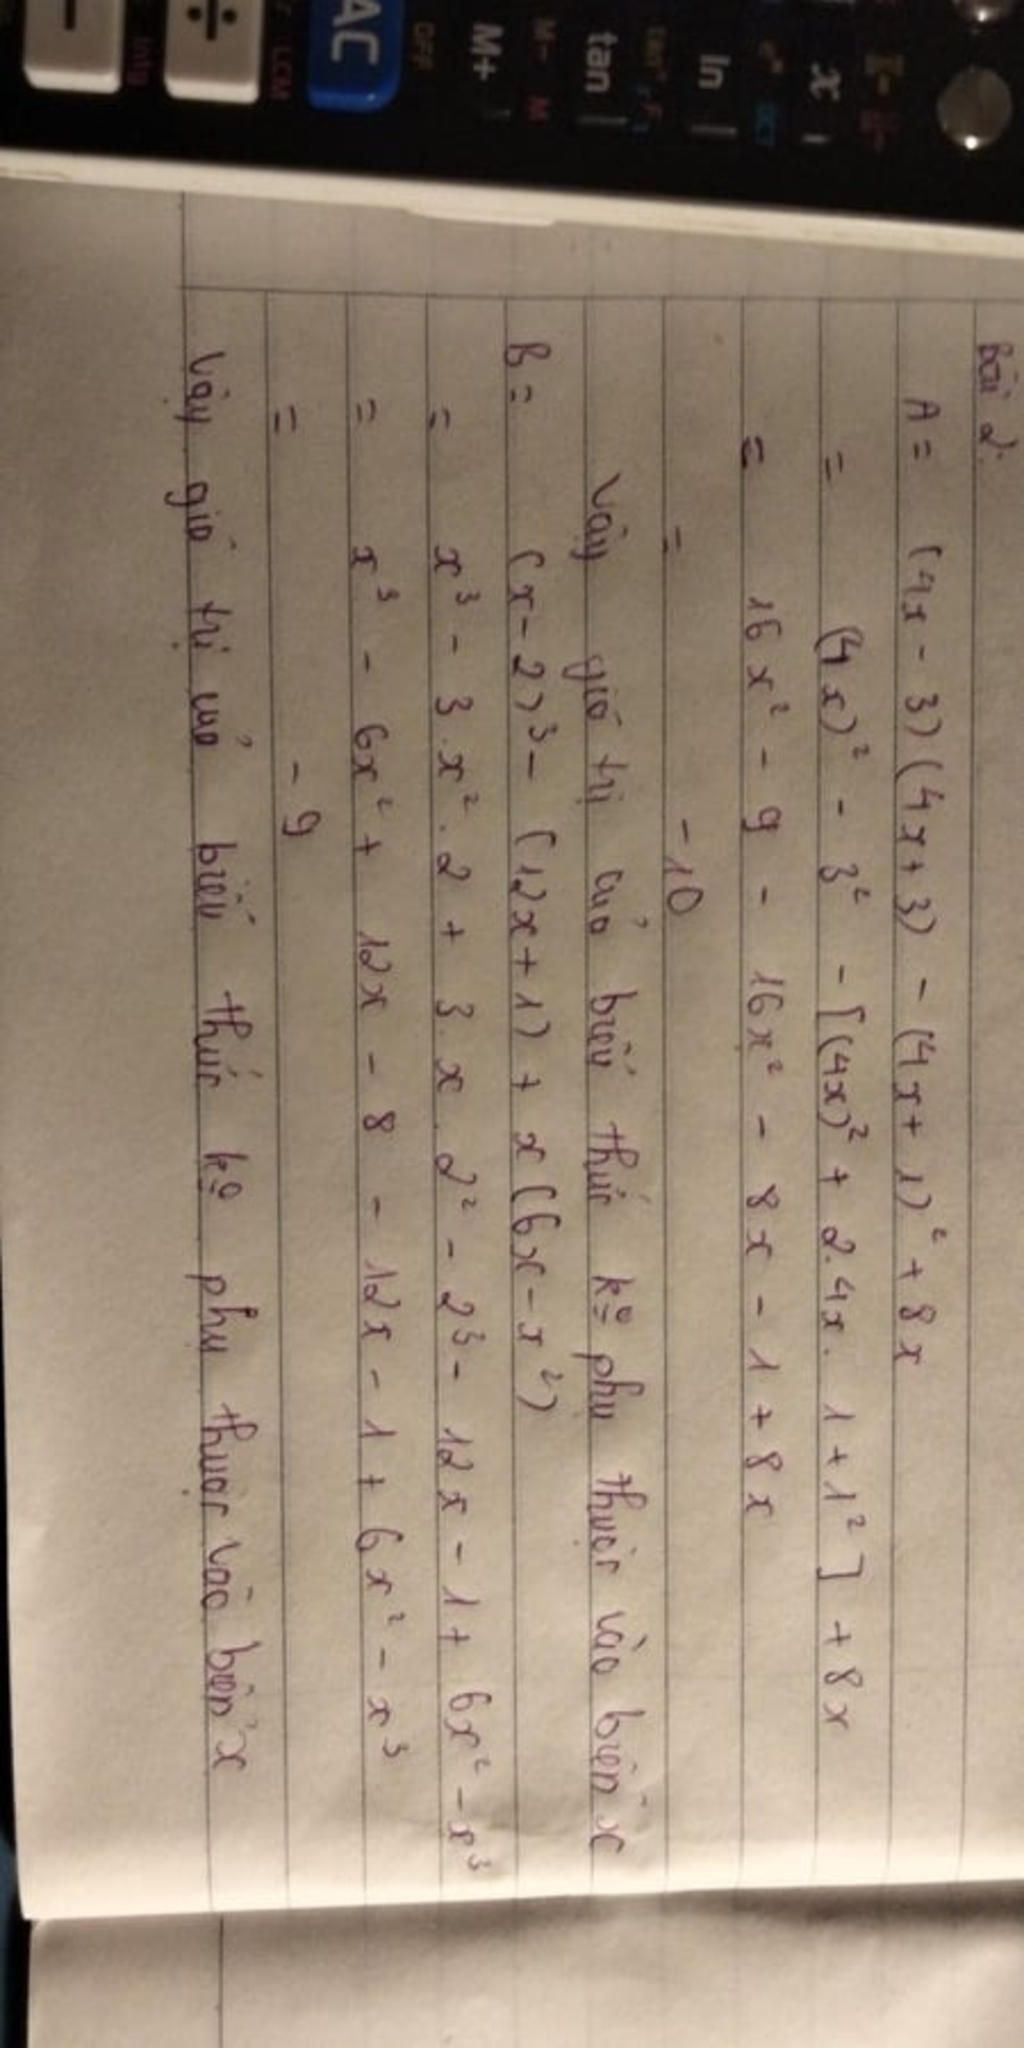 Bài 2:
A = (4x - 3)(4x + 3) - (4x + 1)² + 8x
= (4x)² - 3² - [(4x)² + 2.4x.1 + 1²] + 8x
= 16x² - 9 - 16x² - 8x - 1 + 8x
= -10
Vậy giá trị của biểu thức kº phụ thuộc vào biến x
B = (x - 2)³ - (12x + 1) + x(6x - x²)
= x³ - 3.x².2 + 3x.2² - 2³ - 12x - 1 + 6x² - x³
= x³ - 6x² + 12x - 8 - 12x - 1 + 6x² - x³
= -9
Vậy giá trị của biểu thức kº phụ thuộc vào biến x
AC
÷
LCM
Intg
OFF
M+
M-
M
tan
ln
x